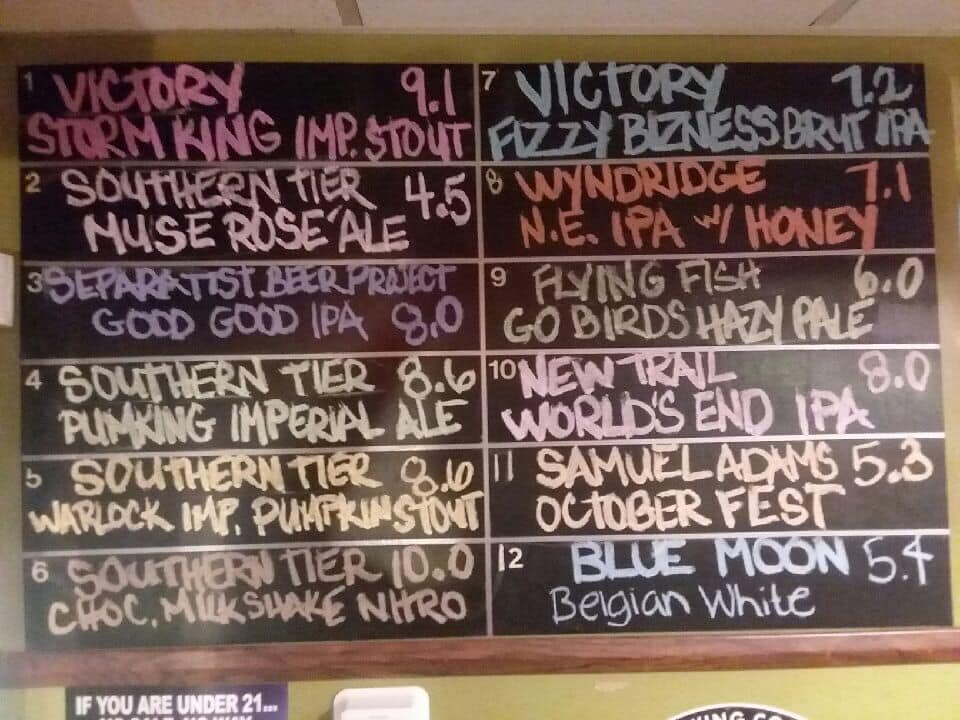 1 VICTORY 9.1
STORM KING IMP. STOUT
2 SOUTHERN TIER 4.5
MUSE ROSÉ ALE
3 SEPARATIST BEER PROJECT
GOOD GOOD IPA 8.0
4 SOUTHERN TIER 8.6
PUMKING IMPERIAL ALE
5 SOUTHERN TIER 8.6
WARLOCK IMP. PUMPKIN STOUT
6 SOUTHERN TIER 10.0
CHOC. MILKSHAKE NITRO
7 VICTORY 7.2
FIZZY BIZNESS BRUT IPA
8 WYNDRIDGE 7.1
N.E. IPA w/ HONEY
9 FLYING FISH 6.0
GO BIRDS HAZY PALE
10 NEW TRAIL 8.0
WORLD'S END IPA
11 SAMUEL ADAMS 5.3
OCTOBER FEST
12 BLUE MOON 5.4
Belgian White
IF YOU ARE UNDER 21...